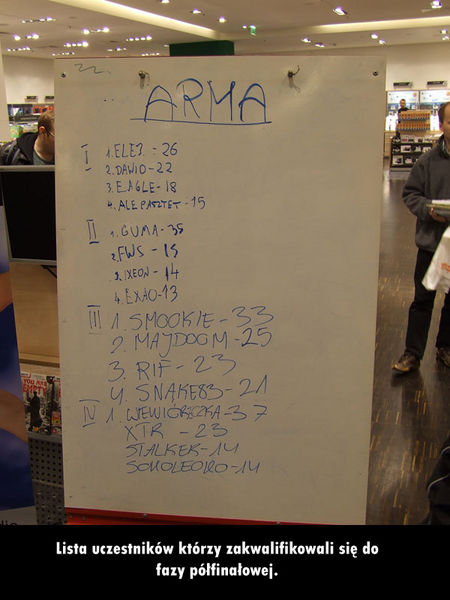 ARMA
I 1. ELE3. - 26
2. DAWID - 22
3. EAGLE - 18
4. ALE PASZTET - 15
II 1. GUMA - 35
2. FWS - 15
3. IXEON - 14
4. EXAO - 13
III 1. SMOOKIE - 33
2. MAJDOOM - 25
3. RIF - 23
4. SNAKE83 - 21
IV 1. WEWIÓRECZKA - 37
XTR - 23
STALKER - 14
SOKOLEOIRO - 14
Lista uczestników którzy zakwalifikowali się do
fazy półfinałowej.